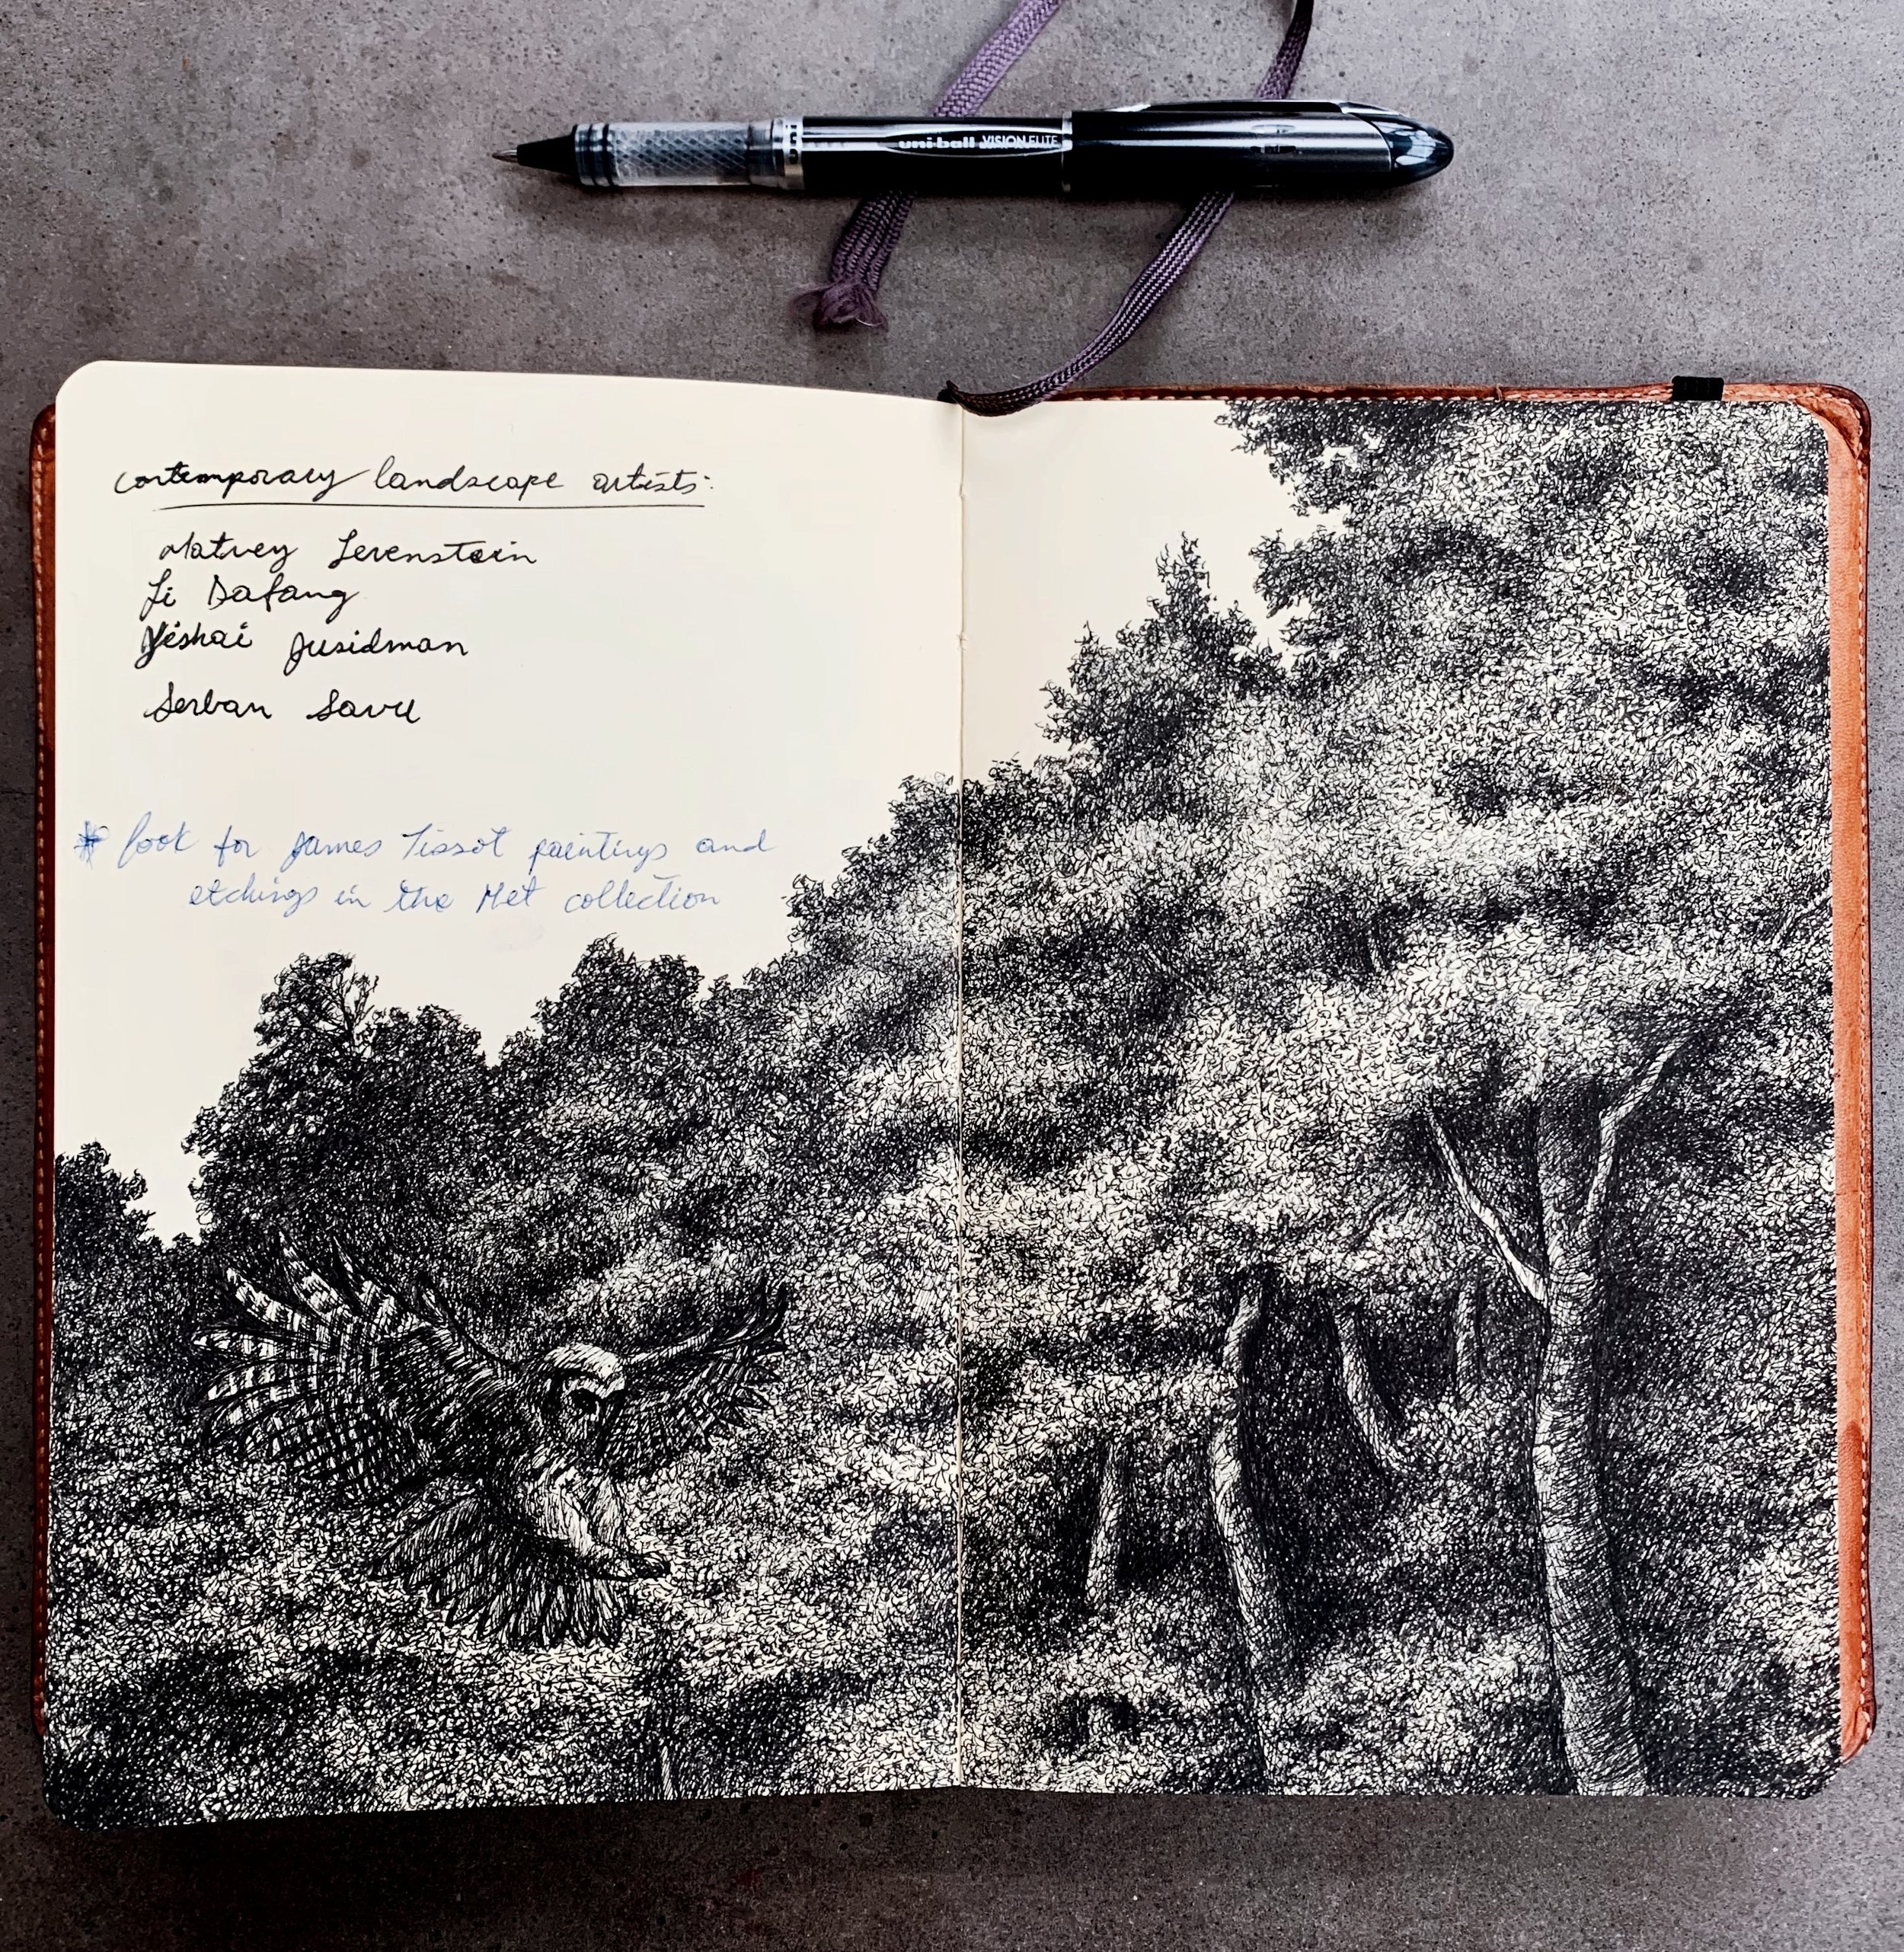 uni
uni-ball VISION ELITE
contemporary landscape artists:
Matvey Levenstein
Li Dafang
Yishai Jusidman
Serban Savu
* look for James Tissot paintings and
etchings in the Met collection